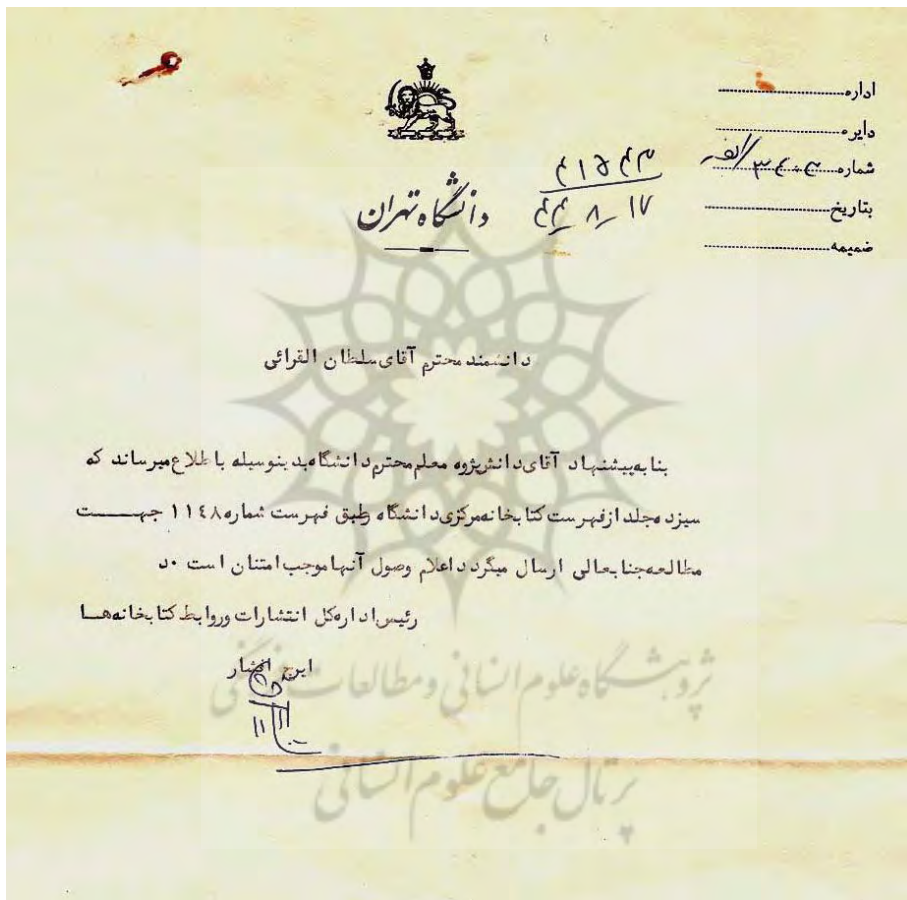 اداره
دایره
شماره ۳۴۰۳/الف
بتاریخ ۱۷_۸_۴۴
ضمیمه
دانشگاه تهران
دانشمند محترم آقای سلطان القرائی
بنا به پیشنهاد آقای دانش پژوه معلم محترم دانشگاه بدینوسیله باطلاع میرساند که
سیزده مجلد از فهرست کتابخانه مرکزی دانشگاه طبق فهرست شماره ۱۱٤۸ جهت
مطالعه جنابعالی ارسال میگردد اعلام وصول آنها موجب امتنان است ۰د
رئیس اداره کل انتشارات و روابط کتابخانه ها
ایرج افشار
پژوهشگاه علوم انسانی و مطالعات فرهنگی
پرتال جامع علوم انسانی